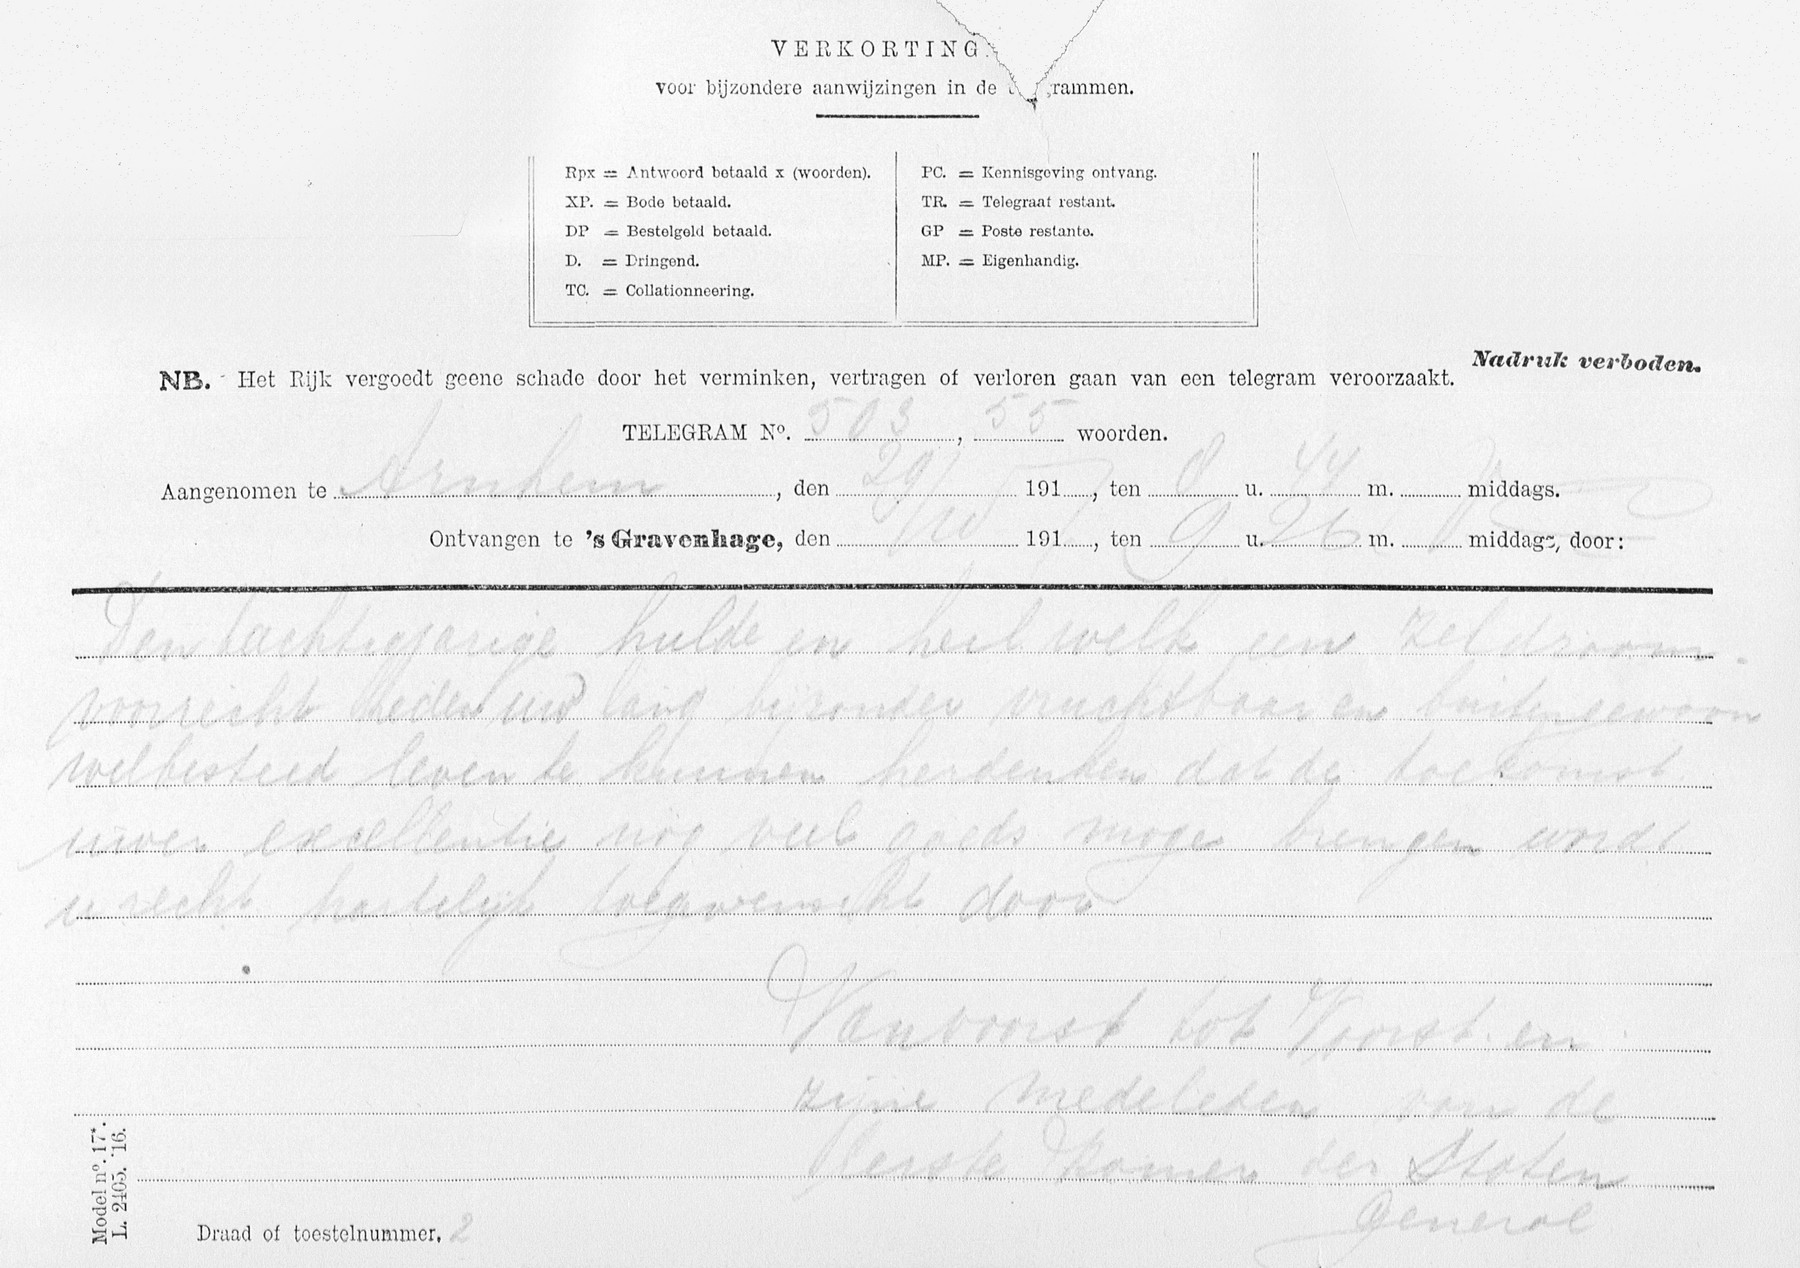 VERKORTING.
voor bijzondere aanwijzingen in de rammen.
Rpx = Antwoord betaald x (woorden).
XP. = Bode betaald.
DP = Bestelgeld betaald.
D. = Dringend.
TC. = Collationneering.
PC. = Kennisgeving ontvang.
TR. = Telegraaf restant.
GP = Poste restante.
MP. = Eigenhandig.
Nadruk verboden.
NB. Het Rijk vergoedt geene schade door het verminken, vertragen of verloren gaan van een telegram veroorzaakt.
TELEGRAM No. 503, 55 woorden.
Aangenomen te Arnhem, den 29/ 191 7, ten 8 u. 44 m. middags.
Ontvangen te 's Gravenhage, den /10 191, ten 9 u. 26 m. middags, door:
Den tachtigjarige hulde en heil welk een zeldzaam
voorrecht heden uw lang bijzonder vruchtbaar en buitengewoon
welbesteed leven te kunnen herdenken dat de toekomst
uwer excellentie nog veel goeds moge brengen wordt
u recht hartelijk toegewenscht door
Van voorst tot Voorst en
zijne medeleden van de
Eerste Kamer der Staten
Generaal
Model no. 17*.
L. 2405. '16.
Draad of toestelnummer. 2